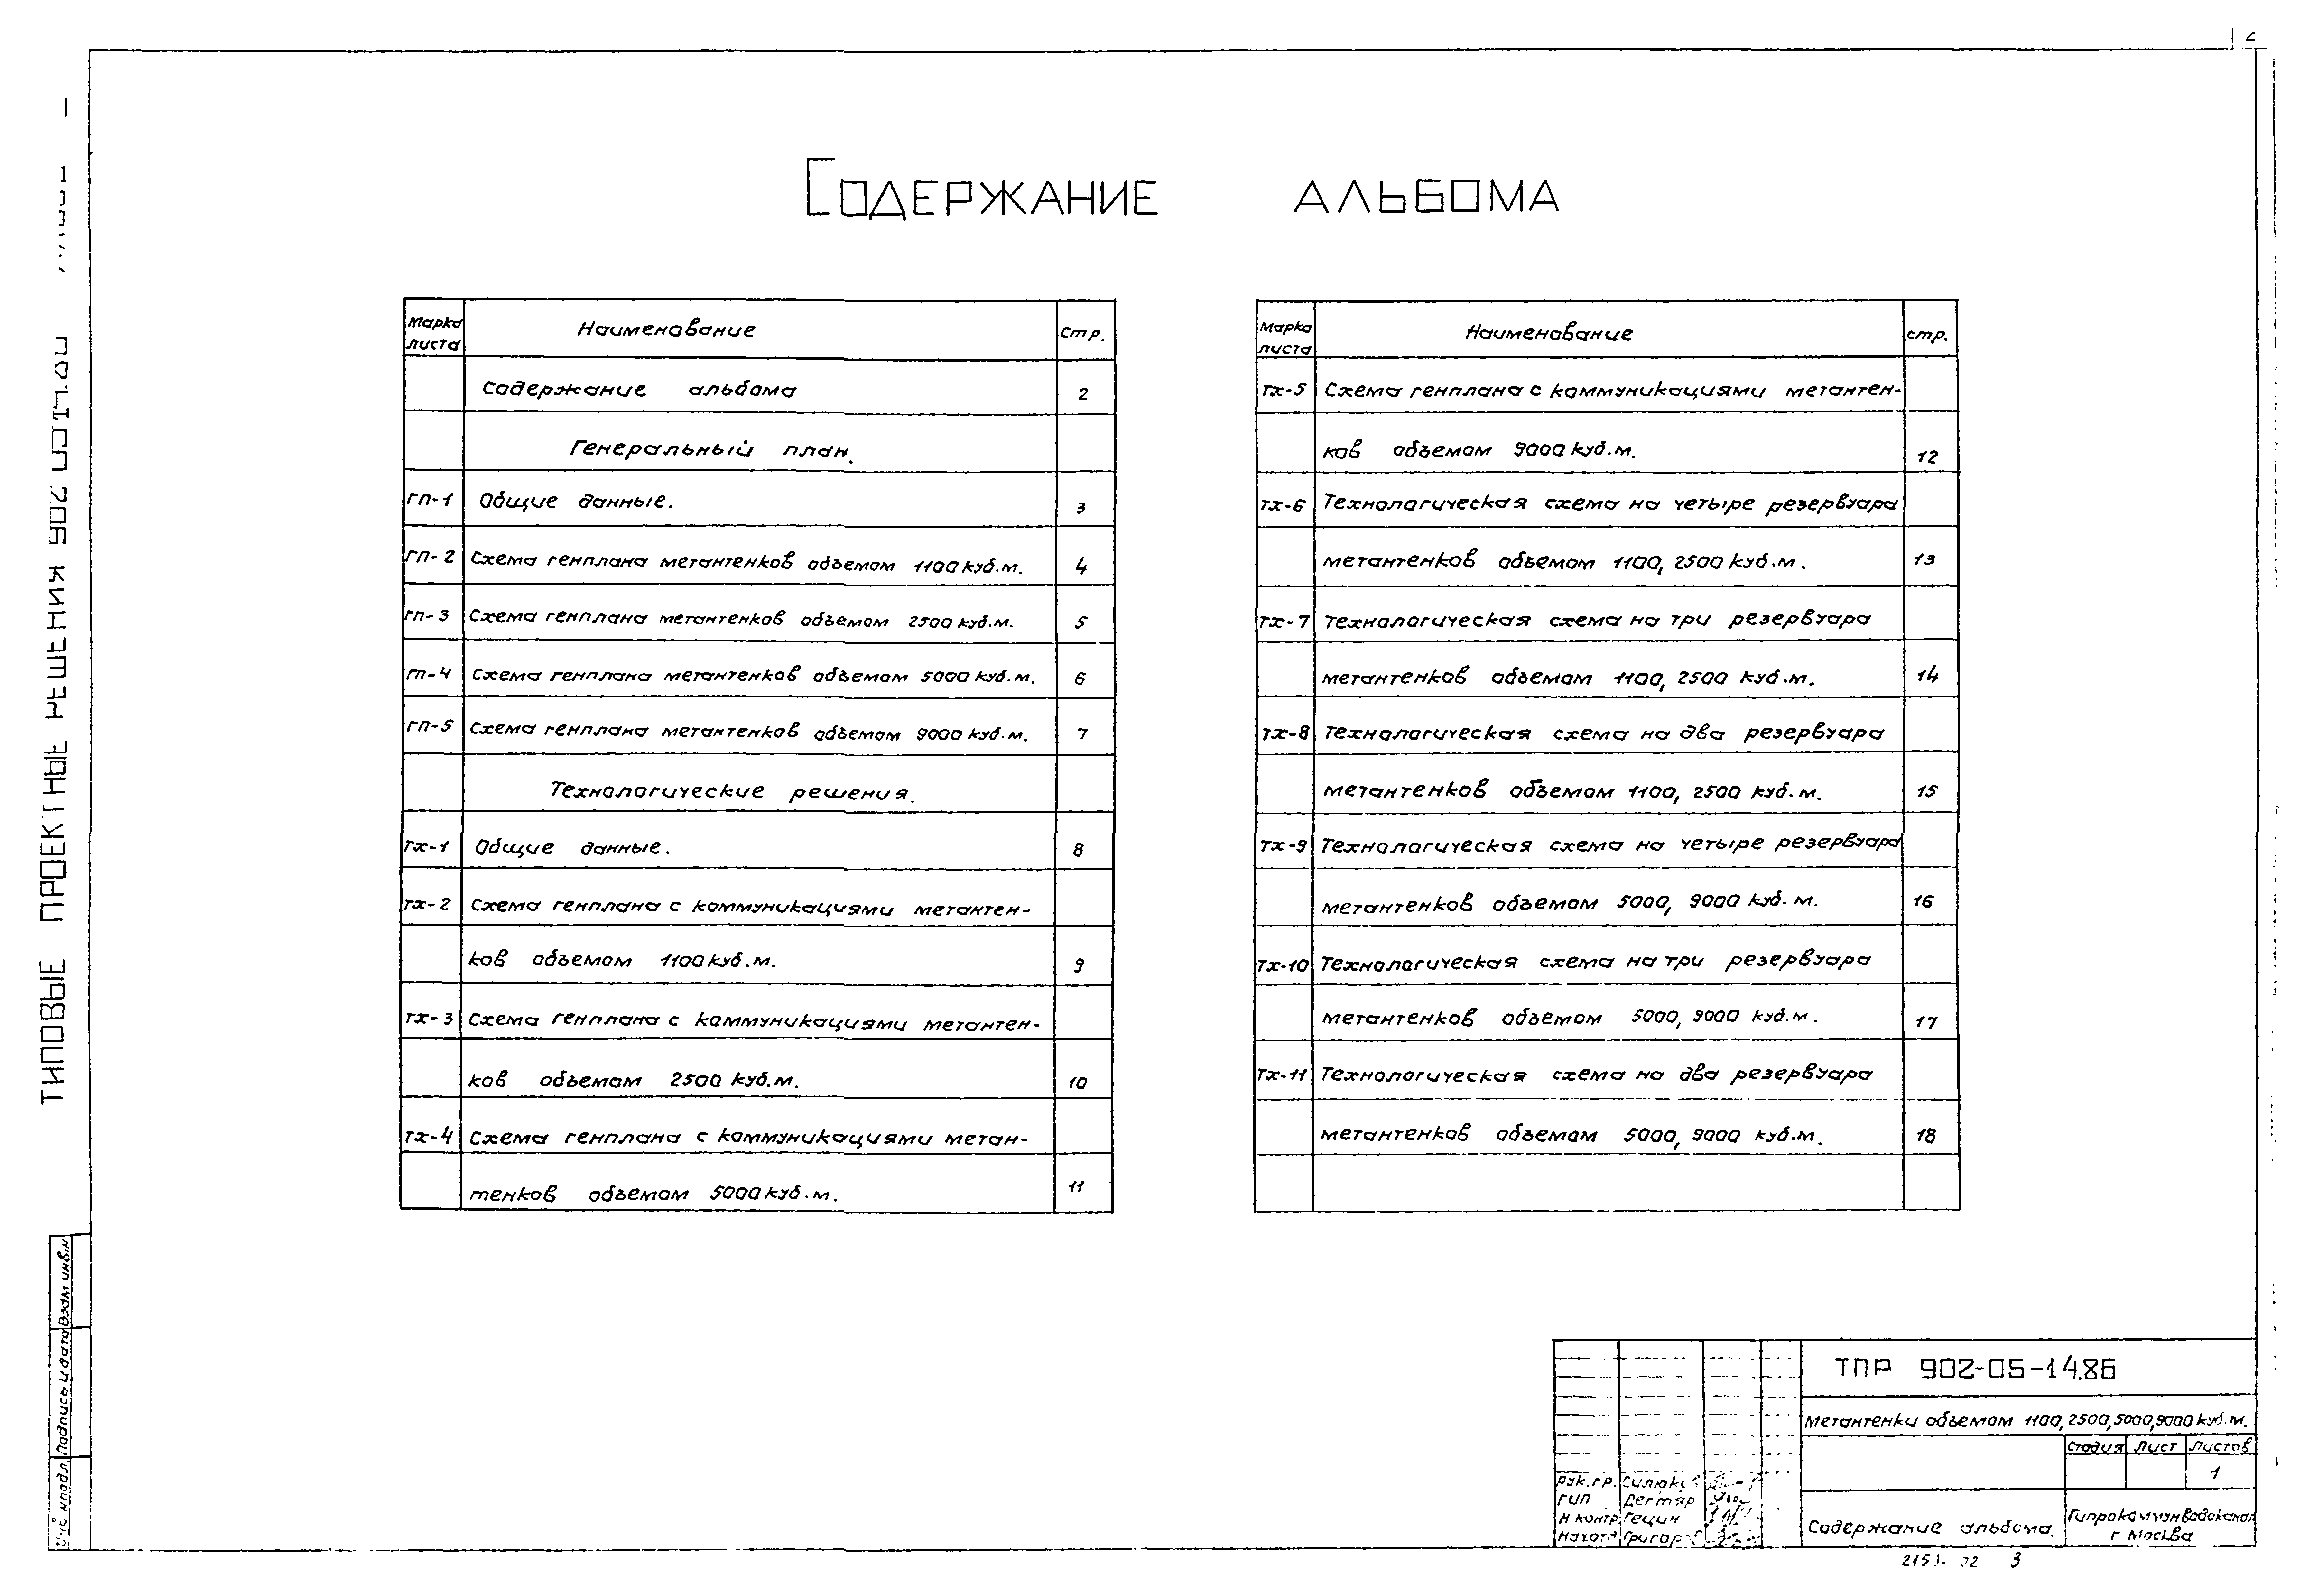 2
Содержание альбома
Марка листа Наименование Стр.
Содержание альбома 2
Генеральный план.
ГП-1 Общие данные. 3
ГП-2 Схема генплана метантенков объемом 1100 куб.м. 4
ГП-3 Схема генплана метантенков объемом 2500 куб.м. 5
ГП-4 Схема генплана метантенков объемом 5000 куб.м. 6
ГП-5 Схема генплана метантенков объемом 9000 куб.м. 7
Технологические решения.
ТХ-1 Общие данные. 8
ТХ-2 Схема генплана с коммуникациями метантен-
ков объемом 1100 куб.м. 9
ТХ-3 Схема генплана с коммуникациями метантен-
ков объемом 2500 куб.м. 10
ТХ-4 Схема генплана с коммуникациями метан-
тенков объемом 5000 куб.м. 11
Марка листа Наименование стр.
ТХ-5 Схема генплана с коммуникациями метантен-
ков объемом 9000 куб.м. 12
ТХ-6 Технологическая схема на четыре резервуара
метантенков объемом 1100, 2500 куб.м. 13
ТХ-7 Технологическая схема на три резервуара
метантенков объемом 1100, 2500 куб.м. 14
ТХ-8 Технологическая схема на два резервуара
метантенков объемом 1100, 2500 куб.м. 15
ТХ-9 Технологическая схема на четыре резервуара
метантенков объемом 5000, 9000 куб.м. 16
ТХ-10 Технологическая схема на три резервуара
метантенков объемом 5000, 9000 куб.м. 17
ТХ-11 Технологическая схема на два резервуара
метантенков объемом 5000, 9000 куб.м. 18
ТИПОВЫЕ ПРОЕКТНЫЕ РЕШЕНИЯ 902
Взам инв.№
Подпись и дата
Инв.№подл.
ТПР 902-05-14.86
Метантенки объемом 1100, 2500, 5000, 9000 куб.м.
Стадия Лист Листов
1
Рук.гр.
ГИП Дегтяр
Н контр Гецин
Григор
Содержание альбома.
Гипрокоммунводоканал
г Москва
3